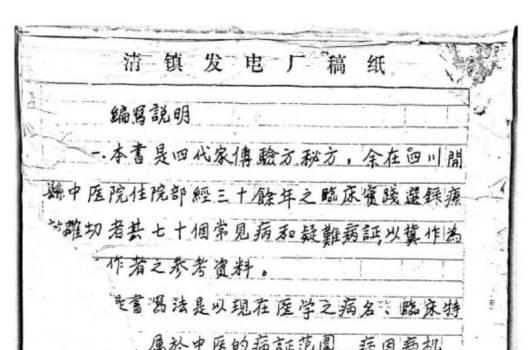 清镇发电厂稿纸
编写説明
一.本書是四代家傳驗方秘方，余在四川開
縣中医院住院部經三十餘年之臨床實践選録療
確切者共七十個常見病和疑難病証，以冀作為
作者之参考資料。
書写法是以現在医学之病名、臨床特
属於中医的病証范圍、病因病机